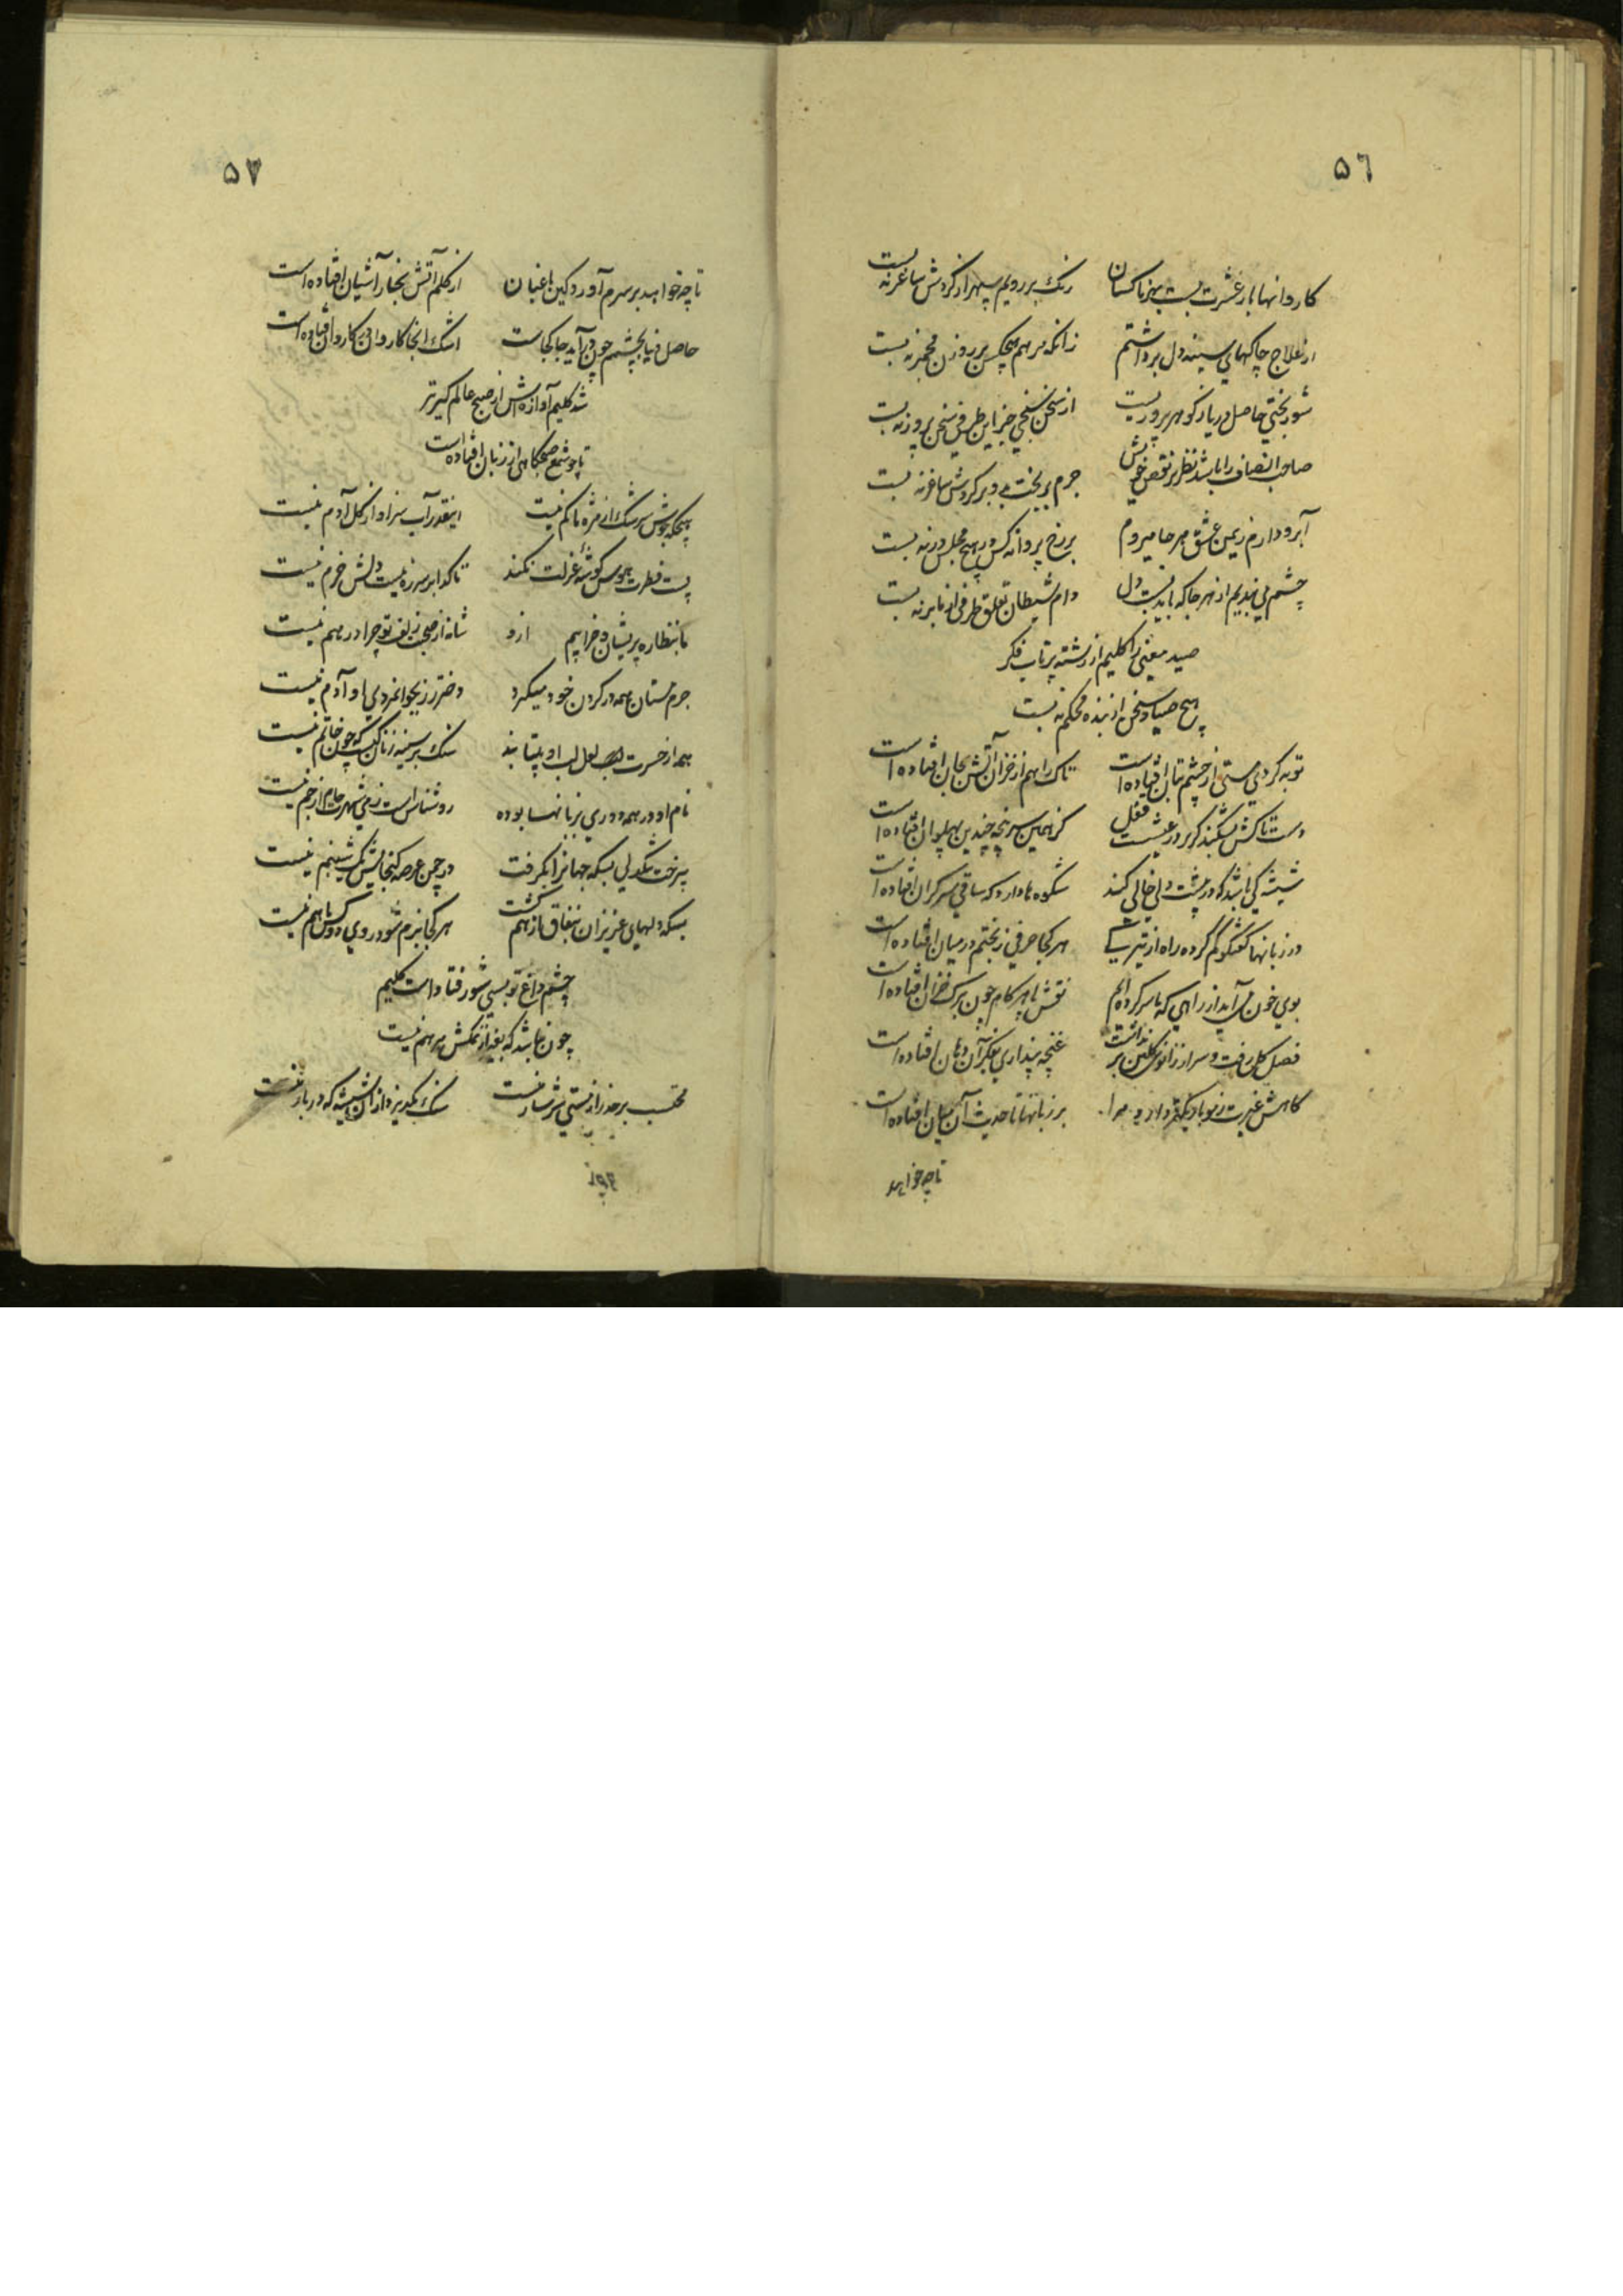 ٥٦
کاروانها بار عشرت بست بهر ناکسان رنک بر رویم سپهر از کردش ساغر نه بست
از علاج چاکهای سینه دل برداشتم زانکه مرهم هیچکس بر روزن مجمر نه بست
شور بختی حاصل دریا ز کوهر پروریست از سخن سنجی جز این طرفی سخن پرور نه بست
صاحب انصاف را باشد نظر بر نقص خویش جرم بر بخت و بر کردش ساغر نه بست
آبرو دارم ز یمن عشق هر جا میروم بر رخ پروانه کس در هیچ مجلس در نه بست
چشم می بندیم از هر جا که باید بست دل دام شیطان تعلق طرفی از ما بر نه بست
صید معنی را کلیم از رشته پرتاب فکر
هیچ صیاد سخن از بنده محکم نه بست
توبه کردی مستی از چشم بتان افتاده است تاک را هم از خزان آتش بجان افتاده است
دست تاکش بشکند کر بر در عیشت قفل کز همین سرپنجه چندین پهلوان افتاده است
شیشه کی باشد که در پشت دلی خالی کند شکوه ها دارد که ساقی سرکران افتاده است
در زبانها کفتکو کم کرده راه از تیرکی هر کجا حرفی ز بختم در میان افتاده است
بوی خون می آید از راهی که پا سر کرده ایم نقش پا هر کام چون برک خزان افتاده است
فصل کل رفت و سر از زانوی کلبن بر نداشت غنچه پنداری بفکر آن دهان افتاده است
کاهش غیرت ز مو باریکتر دارد مرا بر زبانها تا حدیث آن میان افتاده است
تا چه خواهد
٥٧
تا چه خواهد بر سرم آورد کین باغبان از کلم آتش بخار آشیان افتاده است
حاصل دنیا بچشم چون در آید جا کجاست اشک اینجا کاروان در کاروان افتاده است
شد کلیم آوازه اش از صبح عالم کیرتر
تا چو شمع صبحکاهی از زبان افتاده است
هیچکه جوش سرشک از مژه ما کم نیست اینقدر آب سزاوار کل آدم نیست
پست فطرت هوس کوشه عزلت نکند تا کدا بر سر ره نیست دلش خرم نیست
ما بنظاره پریشان و خرابیم ازو شانه از صحبت زلف تو چرا درهم نیست
جرم مستان همه در کردن خود میکیرد دختر رز بجوانمردی او آدم نیست
همه از حسرت لعل لب او بیتابند سنک بر سینه زنان کیست که چون خاتم نیست
نام او در همه دوری بزبانها بوده روشناس است ز می شهرت جام از جم نیست
بیرخت تنکدلی بسکه جهانرا بکرفت در چمن عرصه کنجایش یک شبنم نیست
بسکه دلهای عزیزان بنفاق از هم کشت هر کجا بزم شود روی دو کس با هم نیست
چشم داغ تو بسی شور فتاد است کلیم
چون نباشد که بغیر از نمکش مرهم نیست
محتسب بر حذر از مستی سرشار منست سنک بکریزد از آن شیشه که در بار منست